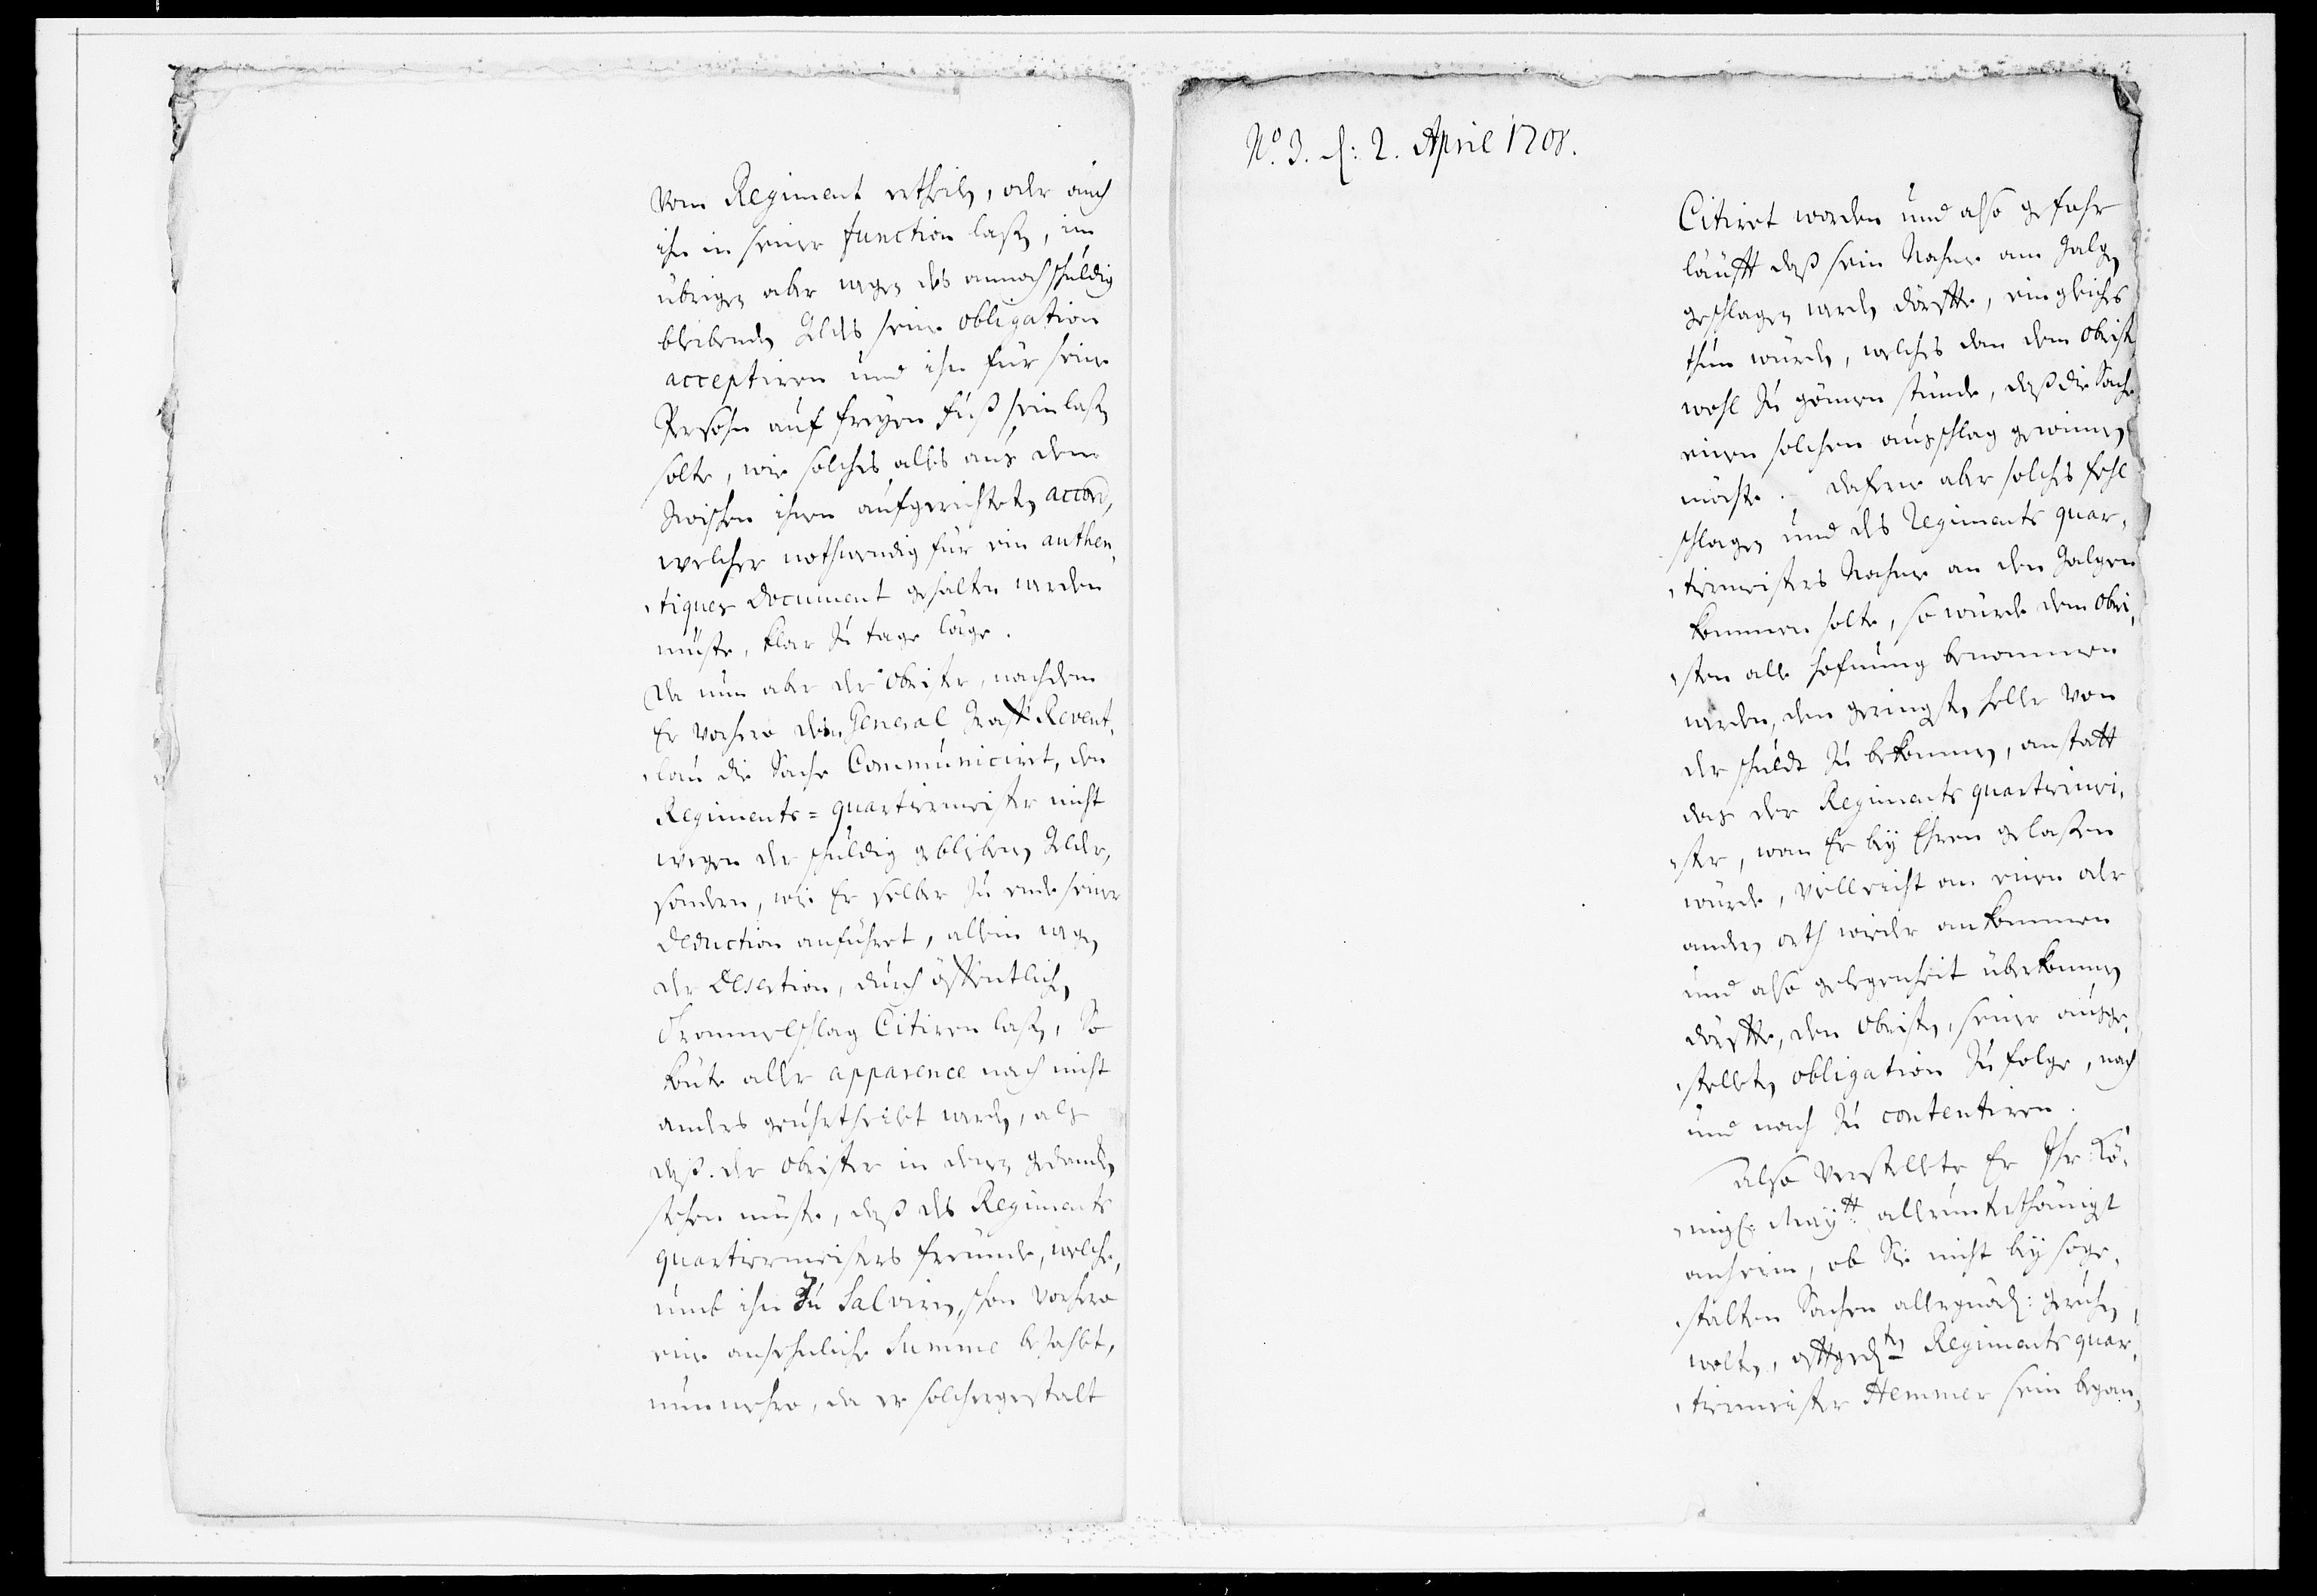 vom Regiment ertheilen, oder auch
ihn in seiner function laßen, im
übrigen aber wegen des annoch schuldig
bleibenden Geldes seine obligation
acceptiren und ihn für seine
Persohn auf freyen fuß sein laßen
solte, wie solches alles aus dem
Zwischen ihnen aufgerichteten accord,
welcher nothwendig für ein authen,
,tiques Document gehalten werden
müste, klar Zu tage läge.
Da nun aber der Obrister, nachdem
Er vorhero dem General Graff Revent,
,lau die Sache Communiciret, den
Regiments=quartiermeister nicht
wegen der schuldig gebliebenen Gelder,
sondern, wie Er selber Zu ende seiner
Deduction anführet, allein wegen
der Desertion, durch öffentlichen
Trommelschlag Citiren laßen, So
könte aller apparence nach nicht
anders geuhrtheilet werden, als
daß der Obrister in denen gedancken
stehen müste, daß des Regiments
quartiermeisters freunde, welche,
umb ihn Zu Salviren, schon vorhero
eine ansehnliche Summe bezahlet,
nunmehro, da er solchergestalt
No. 3. d: 2. April 1708.
Citiret worden und also gefahr
läufft daß sein Nahme am Galgen
geschlagen werden dörffte, ein gleiches
thun würden, welches dan dem Obristen
wohl Zu gönnen stünde, daß die Sache
einen solchen ausschlag gewinnen
möchte. Dafern aber solches fehl
schlagen und des Regiments quar,
,tiermeisters Nahme an den Galgen
kommen solte, so würde dem Obri,
,sten alle hofnung benommen
werden, den geringsten heller von
der schuldt Zu bekommen, anstatt
das der Regiments quartiermei,
,ster, wan Er bey Ehren gelaßen
würde, vielleicht an einen oder
andern orth wieder ankommen
und also gelegenheit überkommen
dörffte, den Obristen, seiner ausge,
,stelleten obligation Zu folge, nach
und nach Zu contentiren.
Also verstellete Er Ihr Kö,
,nigl. Maytt: allerunterthänigst
anheim, ob Sie nicht bey soge,
,stalten Sachen allergnäd: geruhen
wolten, offtgedten Regiments quar,
,tiermeister Hemmer sein began,